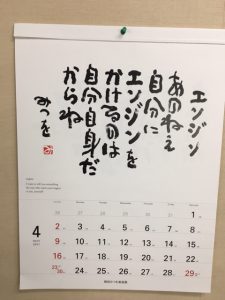 エンジン
あのねえ
自分に
エンジンを
かけるのは
自分自身だ
からね
みつを
4
26
27
28
29
30
31
1
2
3
4
5
6
7
8
9
10
11
12
13
14
15
16
17
18
19
20
21
22
23/30
24
25
26
27
28
29